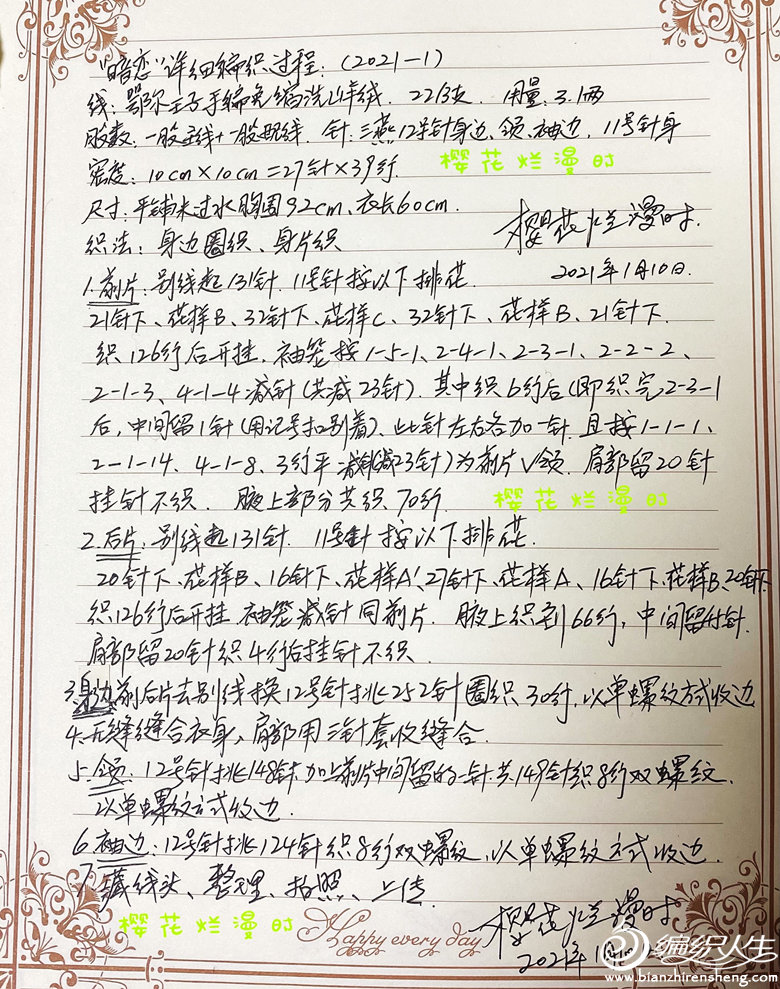 “暗恋”详细编织过程：(2021-1)
线：鄂尔王子手编免缩洗山羊绒. 22/3支. 用量：3.1两
股数：一股主线+一股配线. 针：三燕12号针身边、领、袖边，11号针身
密度：10cm×10cm=27针×39行.
樱花烂漫时
尺寸：平铺未过水胸围92cm、衣长60cm.
织法：身边圈织、身片织
樱花烂漫时.
2021年1月10日.
1.前片：别线起131针. 11号针按以下排花.
21针下、花样B、32针下、花样C、32针下、花样B、21针下.
织126行后开挂. 袖笼按1-5-1、2-4-1、2-3-1、2-2-2、
2-1-3、4-1-4减针(共减23针). 其中织6行后(即织完2-3-1
后，中间留1针(用记号扣别着)、此针左右各加一针. 且按1-1-1、
2-1-14、4-1-8、3行平减针(减23针)为前片V领. 肩部留20针
挂针不织. 腋上部分共织70行.
樱花烂漫时
2.后片：别线起131针. 11号针按以下排花.
20针下、花样B、16针下、花样A'、27针下、花样A、16针下、花样B、20针下.
织126行后开挂. 袖笼减针同前片. 腋上织到66行，中间留针.
肩部留20针织4行后挂针不织.
3.身边：前后片去别线换12号针挑252针圈织30行，以单螺纹方式收边
4.无缝缝合衣身，肩部用三针套收缝合.
5.领：12号针挑148针，加上前片中间留的一针共149针织8行双螺纹.
以单螺纹方式收边.
6.袖边：12号针挑124针织8行双螺纹，以单螺纹方式收边.
7.藏线头、整理、拍照、上传.
樱花烂漫时
Happy every day
樱花烂漫时
2021年1月
编织人生
www.bianzhirensheng.com